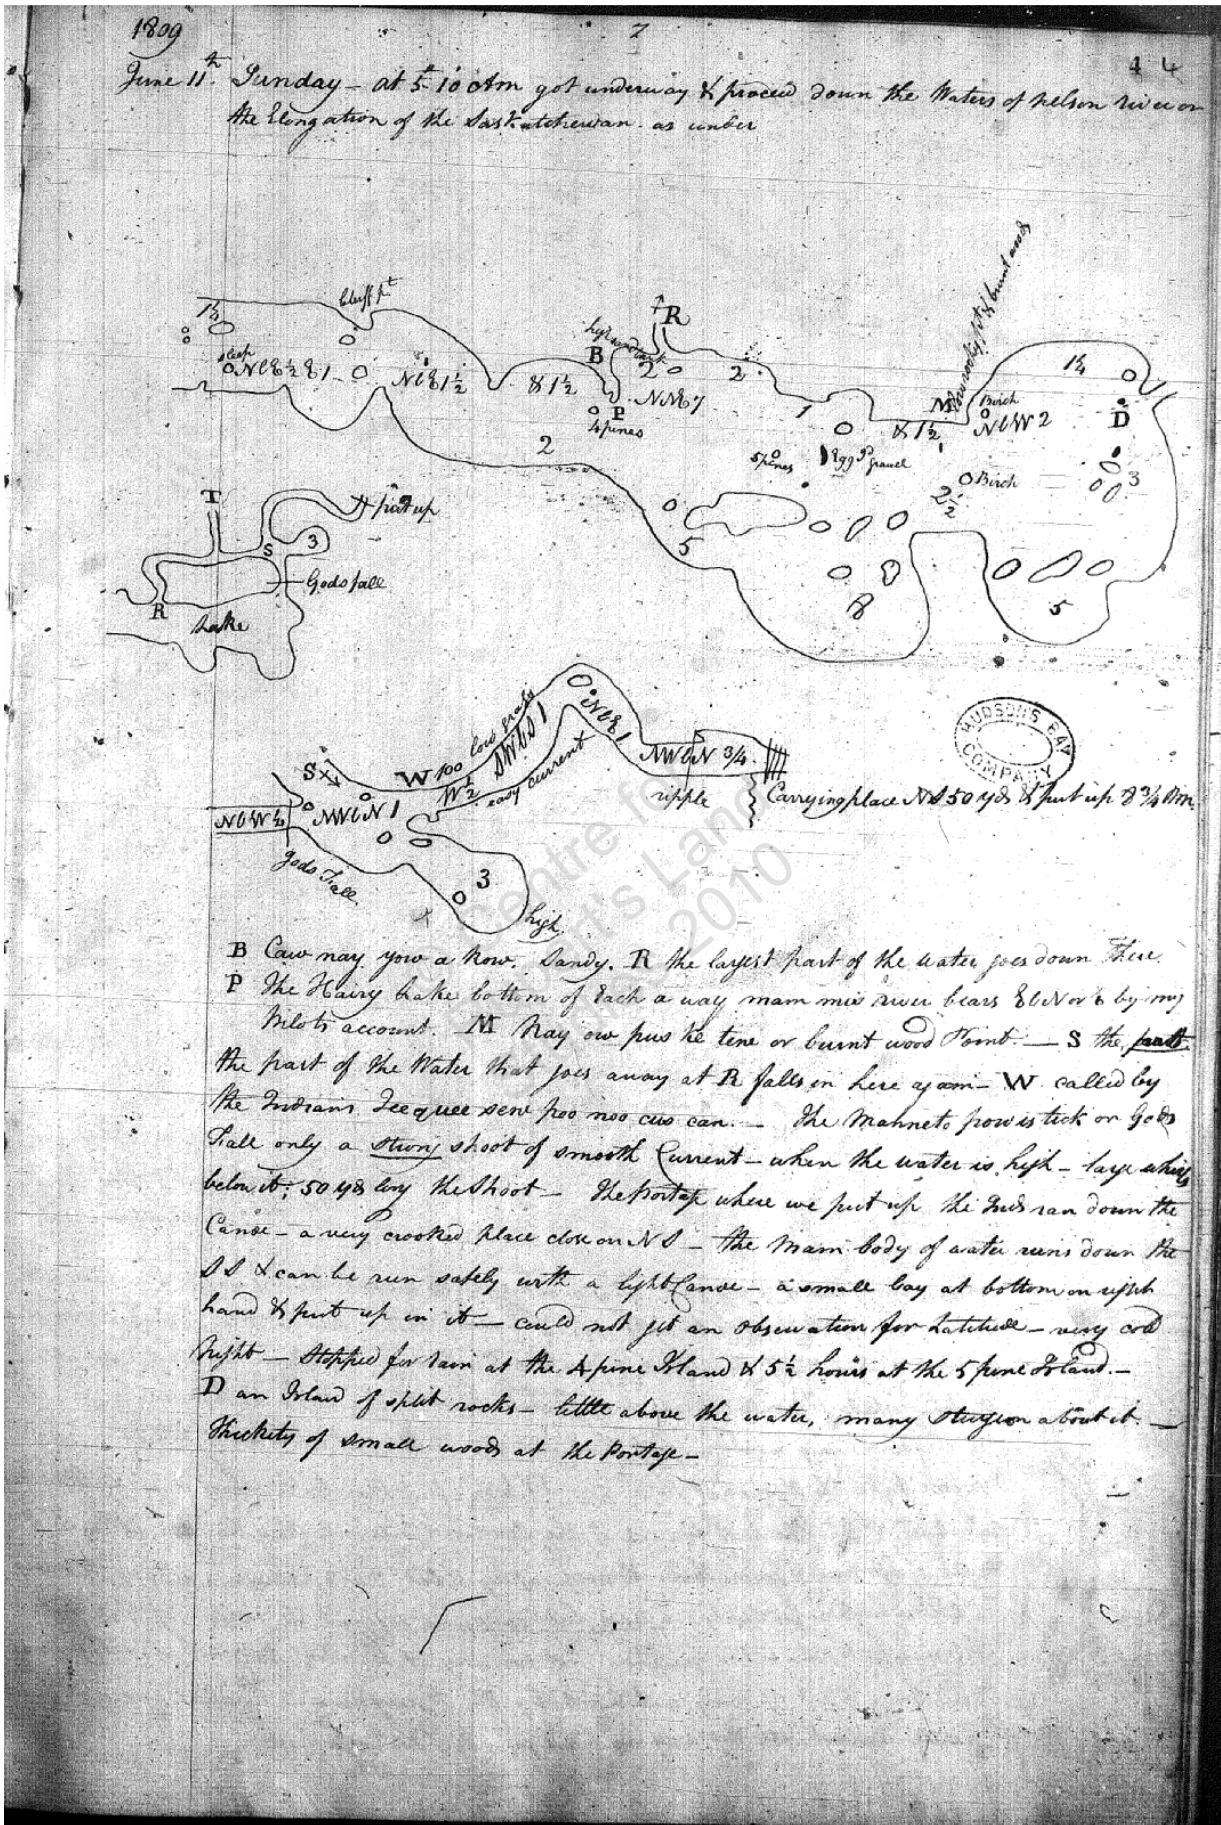 1809
7
4 4
June 11th Sunday - at 5h 10 Am got underway & proceed down the Waters of nelson river or
the Elongation of the Saskatchewan as under
Bluff pt
1¼
sleep
NEbE½E1
NEbE1½
&1½
B
high sand bank
R
2
2
P
4 pines
NNE7
2
1
&1½
M
low rocky pt & burnt woods
Birch
NbW2
1¼
D
5 pines
Egg Id
gravel
Birch
2½
3
5
8
5
T
put up
S
3
Gods fall
R
Lake
S
W 100
low grassy
W½
SWbS1
easy current
NbE1
NWbN ¾
ripple
Carrying place NS 50 yds & put up 8¾ Pm.
NbW½
NWbN1
Gods Fall
3
high
B Caw nay yow a kow. Sandy. R the largest part of the water goes down there.
P The Hairy Lake bottom of Each a way mam mis river bears EbN or E by my
Pilots account. M Nay ow pus ke tene or burnt wood Point. — S the
the part of the Water that goes away at R falls in here again - W. called by
the Indians Teequee sew poo noo cus can. — the Manneto pow is tick or Gods
Fall only a strong shoot of smooth Current - when the water is high - large whirls
below it; 50 yds long the Shoot - the Portage where we put up the Inds ran down the
Canoe - a very crooked place close on NS - the Main body of water runs down the
SS & can be run safely with a light Canoe - a small bay at bottom on right
hand & put up in it - could not get an observation for Latitude - very cold
Night - Stopped for rain at the 4 pine Island & 5½ hours at the 5 pine Island. -
D an Island of split rocks - little above the water, many sturgeon about it. —
Thickets of small woods at the Portage -
HUDSON'S BAY COMPANY
Centre for
Rupert's Land
2010